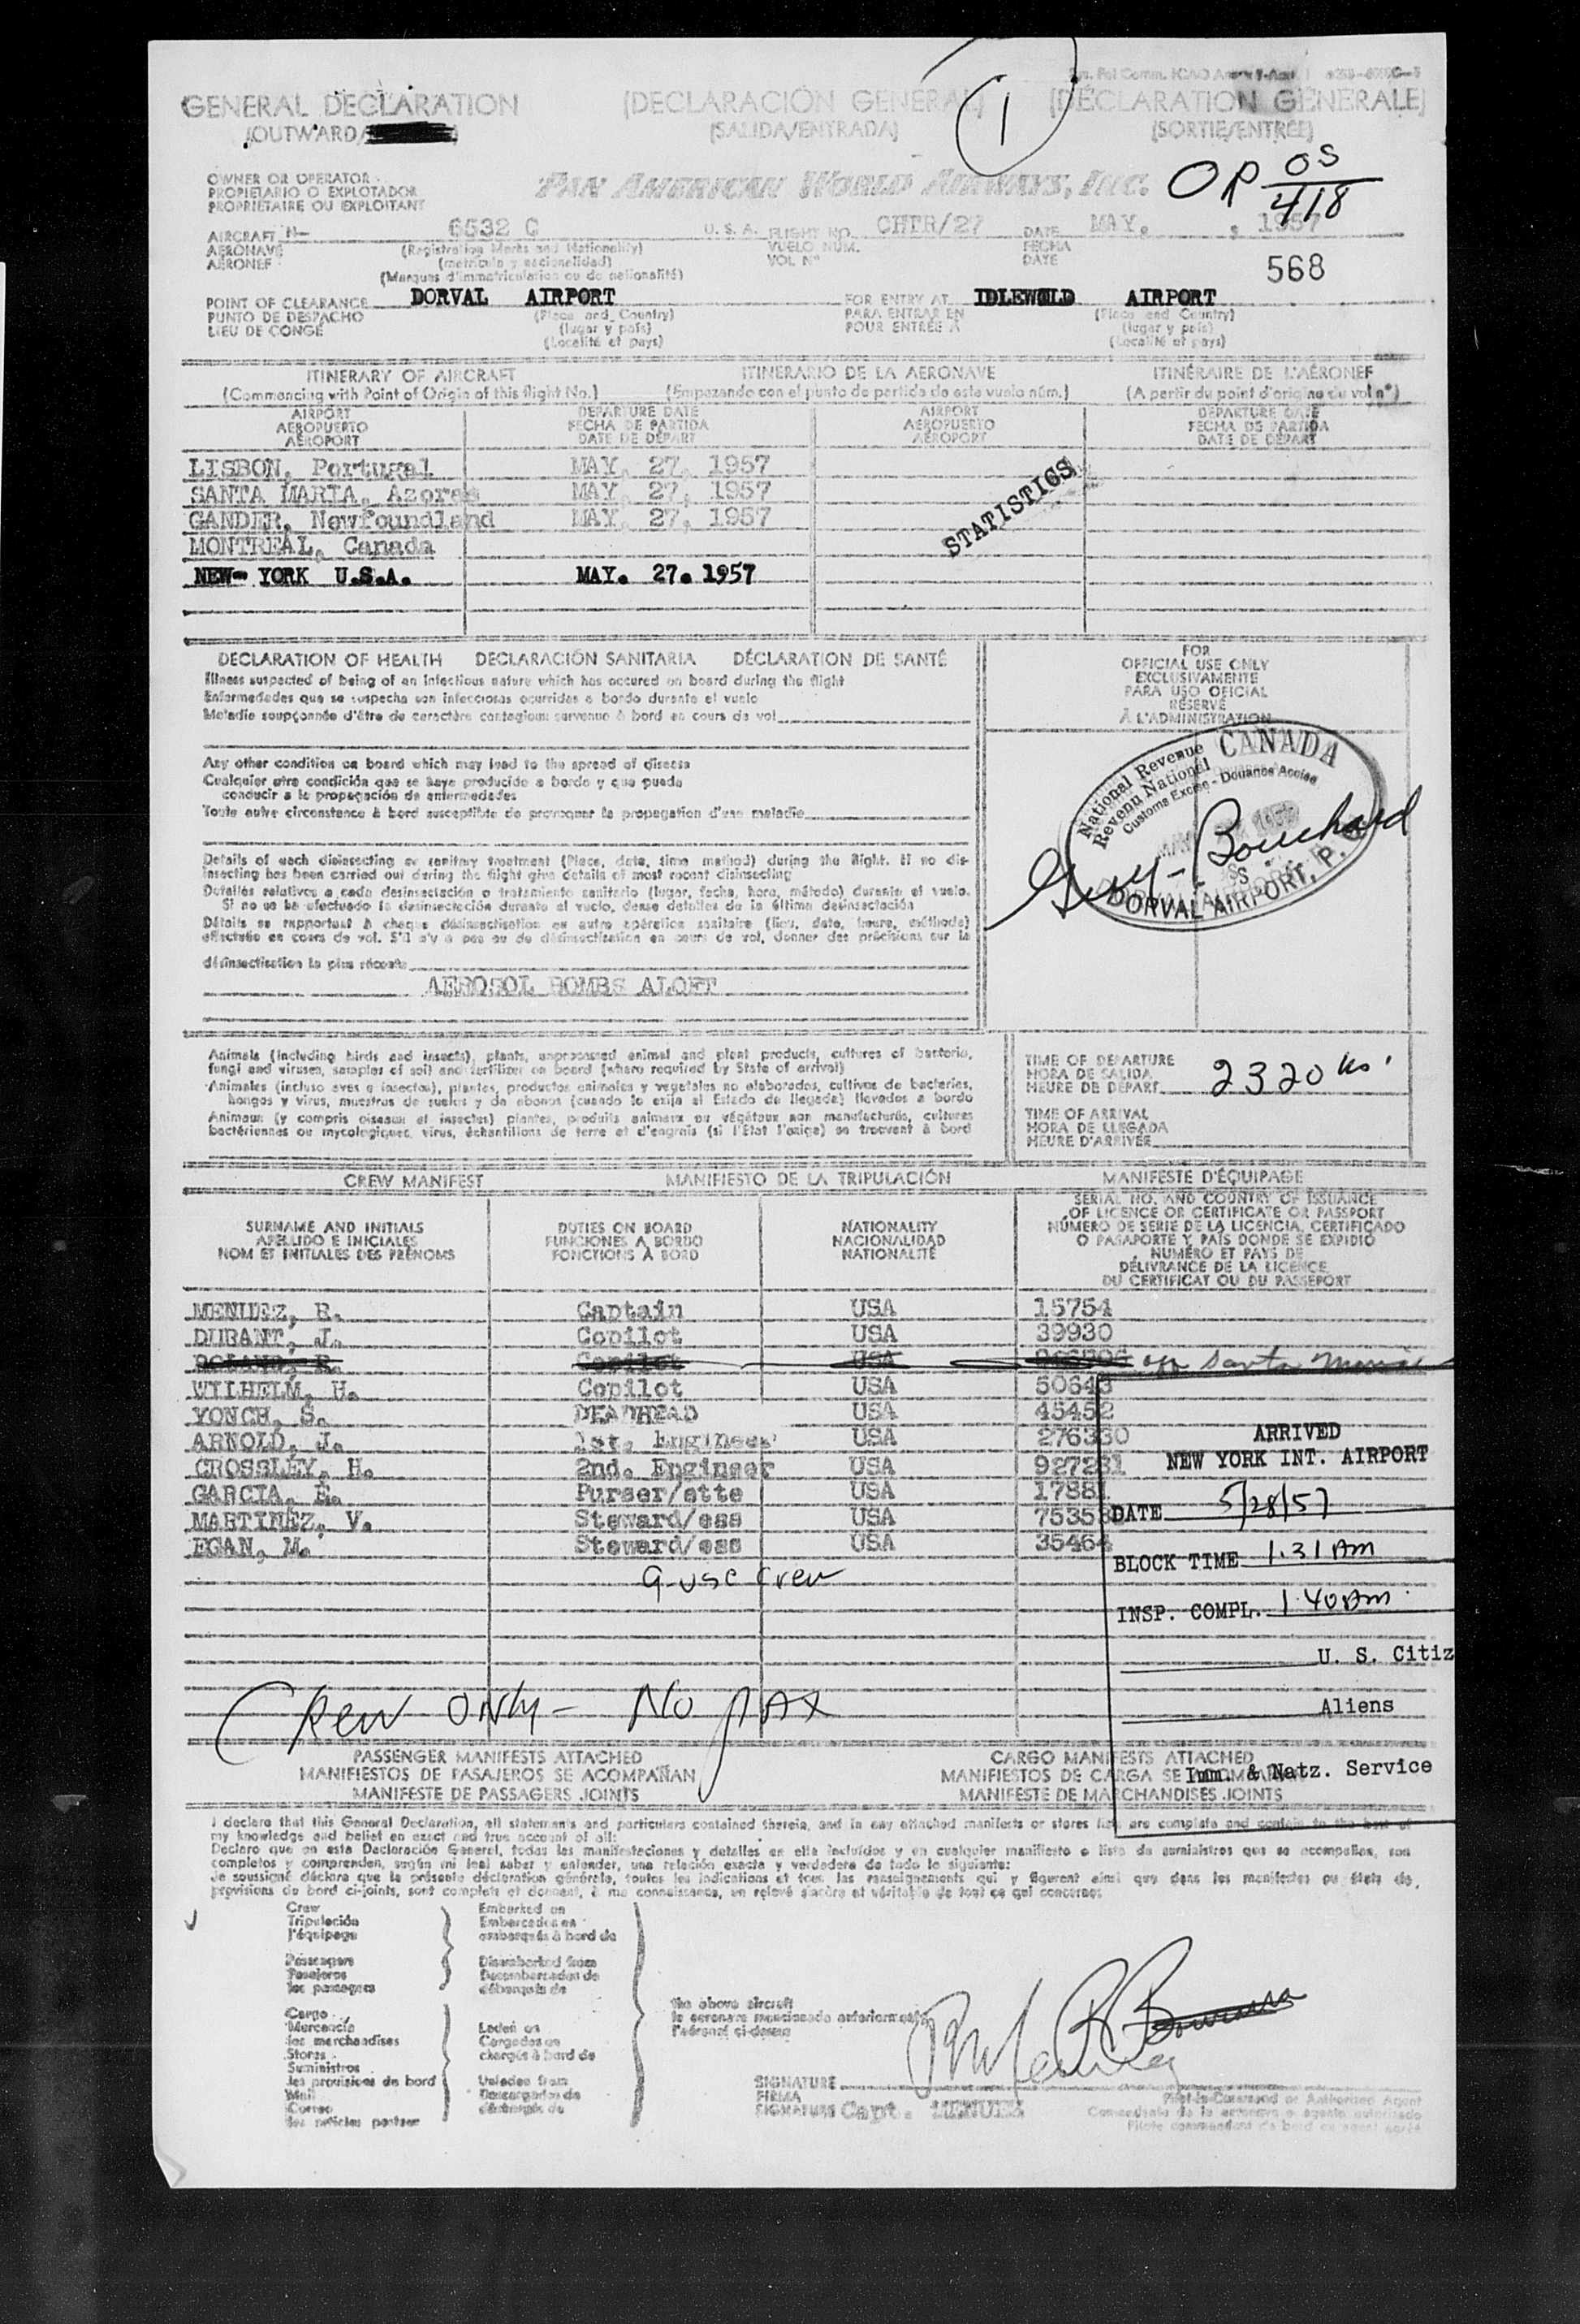 GENERAL DECLARATION (DECLARACIÓN GENERAL) (DÉCLARATION GÉNÉRALE)
(OUTWARD/ (SALIDA/ENTRADA) (SORTIE/ENTRÉE)
1
OWNER OR OPERATOR
PROPIETARIO O EXPLOTADOR
PROPRIÉTAIRE OU EXPLOITANT
PAN AMERICAN WORLD AIRWAYS, INC.
OR OS
418
AIRCRAFT N- 6532 C U.S.A. FLIGHT NO. CHTR/27 DATE MAY. , 1957
AERONAVE (Registration Marks and Nationality) VUELO NÚM. FECHA
AÉRONEF (matrícula y nacionalidad) VOL Nº DATE
(Marques d'immatriculation ou de nationalité)
568
POINT OF CLEARANCE DORVAL AIRPORT FOR ENTRY AT IDLEWILD AIRPORT
PUNTO DE DESPACHO (Place and Country) PARA ENTRAR EN (Place and Country)
LIEU DE CONGÉ (lugar y país) POUR ENTRÉE À (lugar y país)
(Localité et pays) (Localité et pays)
ITINERARY OF AIRCRAFT ITINERARIO DE LA AERONAVE ITINÉRAIRE DE L'AÉRONEF
(Commencing with Point of Origin of this flight No.) (Empezando con el punto de partida de este vuelo núm.) (A partir du point d'origine du vol nº)
AIRPORT DEPARTURE DATE AIRPORT DEPARTURE DATE
AEROPUERTO FECHA DE PARTIDA AEROPUERTO FECHA DE PARTIDA
AÉROPORT DATE DE DÉPART AÉROPORT DATE DE DÉPART
LISBON, Portugal MAY. 27, 1957
SANTA MARIA, Azores MAY. 27, 1957
GANDER, Newfoundland MAY. 27, 1957
MONTREAL, Canada
NEW- YORK U.S.A. MAY. 27. 1957
STATISTICS
DECLARATION OF HEALTH DECLARACIÓN SANITARIA DÉCLARATION DE SANTÉ
Illness suspected of being of an infectious nature which has occured on board during the flight
Enfermedades que se sospecha son infecciosas ocurridas a bordo durante el vuelo
Maladie soupçonnée d'être de caractère contagieux survenue à bord en cours de vol
FOR
OFFICIAL USE ONLY
EXCLUSIVAMENTE
PARA USO OFICIAL
RÉSERVÉ
À L'ADMINISTRATION
Any other condition on board which may lead to the spread of disease
Cualquier otra condición que se haya producido a bordo y que pueda
conducir a la propagación de enfermedades
Toute autre circonstance à bord susceptible de provoquer la propagation d'une maladie
National Revenue CANADA
Revenu National
Customs Excise - Douanes Accise
Bouchard
DORVAL AIRPORT, P. Q.
Details of each disinsecting or sanitary treatment (Place, date, time method) during the flight. If no dis-
insecting has been carried out during the flight give details of most recent disinsecting
Detalles relativos a cada desinsectación o tratamiento sanitario (lugar, fecha, hora, método) durante el vuelo.
Si no se ha efectuado la desinsectación durante el vuelo, dense detalles de la última desinsectación
Détails se rapportant à chaque désinsectisation ou autre opération sanitaire (lieu, date, heure, méthode)
effectuée en cours de vol. S'il n'y a pas eu de désinsectisation en cours de vol, donner des précisions sur la
désinsectisation la plus récente
AEROSOL BOMBS ALOFT
Animals (including birds and insects), plants, unprocessed animal and plant products, cultures of bacteria,
fungi and viruses, samples of soil and fertilizer on board (where required by State of arrival)
Animales (incluso aves e insectos), plantas, productos animales y vegetales no elaborados, cultivos de bacterias,
hongos y virus, muestras de suelos y de abonos (cuando lo exija el Estado de llegada) llevados a bordo
Animaux (y compris oiseaux et insectes) plantes, produits animaux ou végétaux non manufacturés, cultures
bactériennes ou mycologiques, virus, échantillons de terre et d'engrais (si l'État l'exige) se trouvent à bord
TIME OF DEPARTURE
HORA DE SALIDA
HEURE DE DÉPART 2320 hs
TIME OF ARRIVAL
HORA DE LLEGADA
HEURE D'ARRIVÉE
CREW MANIFEST MANIFIESTO DE LA TRIPULACIÓN MANIFESTE D'ÉQUIPAGE
SURNAME AND INITIALS DUTIES ON BOARD NATIONALITY
APELLIDO E INICIALES FUNCIONES A BORDO NACIONALIDAD
NOM ET INITIALES DES PRÉNOMS FONCTIONS À BORD NATIONALITÉ
SERIAL NO. AND COUNTRY OF ISSUANCE
OF LICENCE OR CERTIFICATE OR PASSPORT
NÚMERO DE SERIE DE LA LICENCIA, CERTIFICADO
O PASAPORTE Y PAÍS DONDE SE EXPIDIÓ
NUMÉRO ET PAYS DE
DÉLIVRANCE DE LA LICENCE
DU CERTIFICAT OU DU PASSEPORT
MENUEZ, R. Captain USA 15754
DURANT, J. Copilot USA 39930
Copilot USA off Santa Maria
WILHELM, H. Copilot USA 50643
YONCH, S. DEADHEAD USA 45452
ARNOLD, J. 1st. Engineer USA 276330
CROSSLEY, H. 2nd. Engineer USA 927231
GARCIA, E. Purser/ette USA 17881
MARTINEZ, V. Steward/ess USA 75358
EGAN, M. Steward/ess USA 35464
9 USC Crew
ARRIVED
NEW YORK INT. AIRPORT
DATE 5/28/57
BLOCK TIME 1.31 AM
INSP. COMPL. 1.40 AM
U. S. Citiz
Aliens
Imm. & Natz. Service
CREW ONLY - NO PAX
PASSENGER MANIFESTS ATTACHED CARGO MANIFESTS ATTACHED
MANIFIESTOS DE PASAJEROS SE ACOMPAÑAN MANIFIESTOS DE CARGA SE ACOMPAÑAN
MANIFESTE DE PASSAGERS JOINTS MANIFESTE DE MARCHANDISES JOINTS
I declare that this General Declaration, all statements and particulars contained therein, and in any attached manifests or stores lists are complete and contain to the best of
my knowledge and belief an exact and true account of all:
Declaro que en esta Declaración General, todas las manifestaciones y detalles en ella incluídos y en cualquier manifiesto o lista de suministros que se acompañan, son
completos y comprenden, según mi leal saber y entender, una relación exacta y verdadera de todo lo siguiente:
Je soussigné déclare que la présente déclaration générale, toutes les indications et tous les renseignements qui y figurent ainsi que dans les manifestes ou états de
provisions de bord ci-joints, sont complets et donnent, à ma connaissance, un relevé sincère et véritable de tout ce qui concerne:
Crew Embarked on
Tripulación Embarcados en
l'équipage embarqués à bord de
Passengers Disembarked from
Pasajeros Desembarcados de
les passagers débarqués de
Cargo
Mercancía Laden on
les marchandises Cargados en
Stores chargés à bord de
Suministros
les provisions de bord Unladen from
Mail Descargados de
Correo déchargés de
the above aircraft
la aeronave mencionada anteriormente
l'aéronef ci-dessus
SIGNATURE
FIRMA
SIGNATURE Capt. MENUEZ
Pilot-in-Command or Authorized Agent
Comandante de la aeronave o agente autorizado
Pilote commandant de bord ou agent agréé